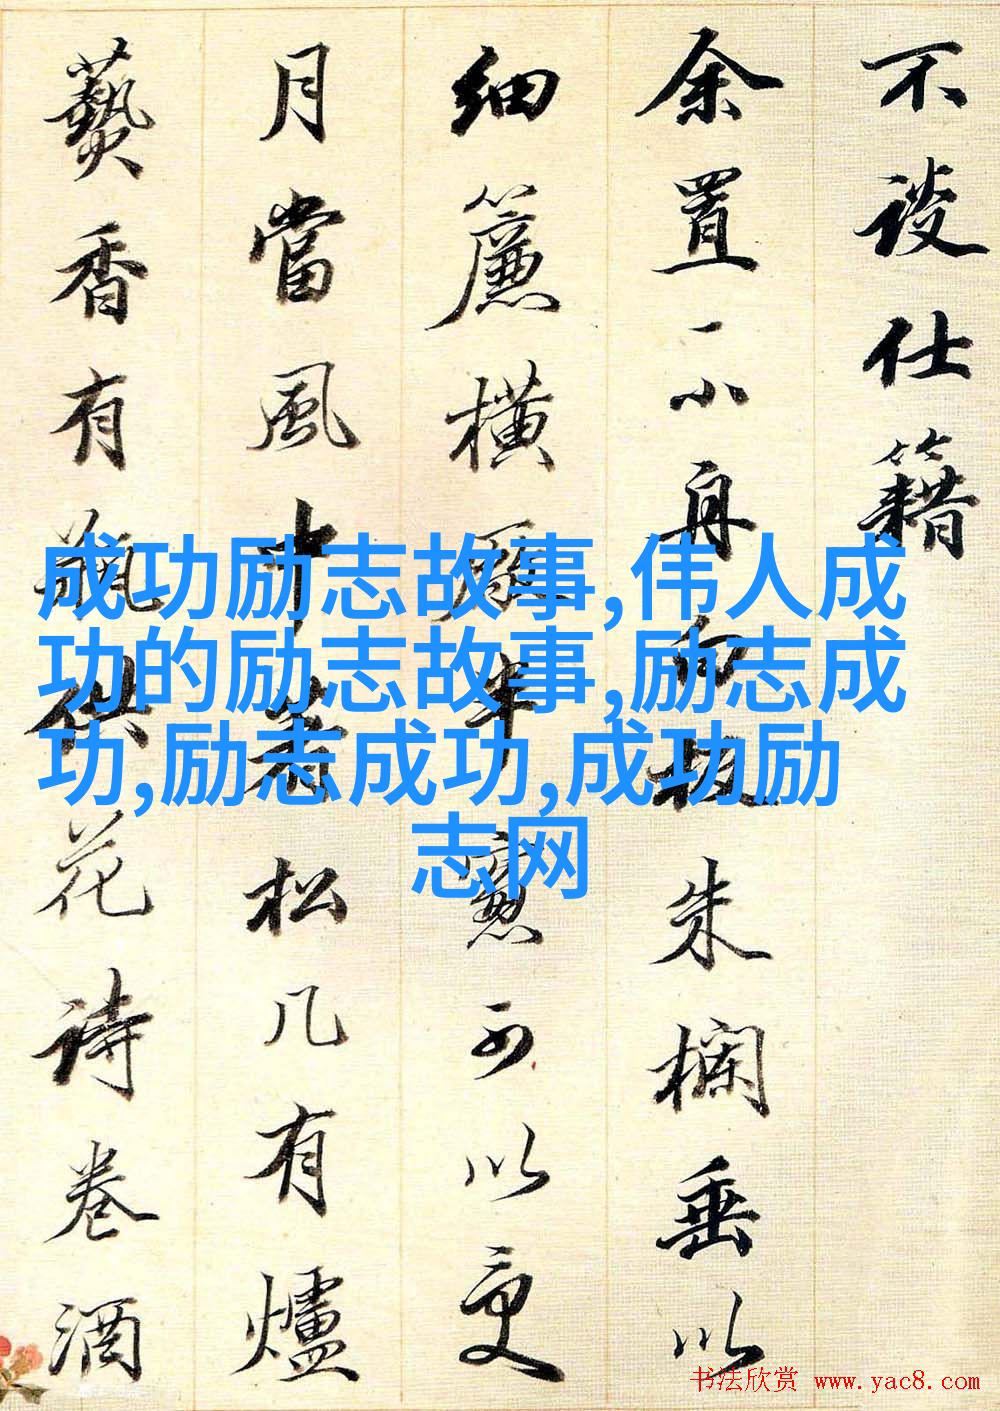 不談仕籍
余置一小舟
朱欄垂以
細簾橫
可以更
月當風
松几有爐
爇香有瓶供花詩卷酒
成功励志故事,伟人成
功的励志故事,励志成
功,励志成功,成功励
志网
书法欣赏 www.yac8.com